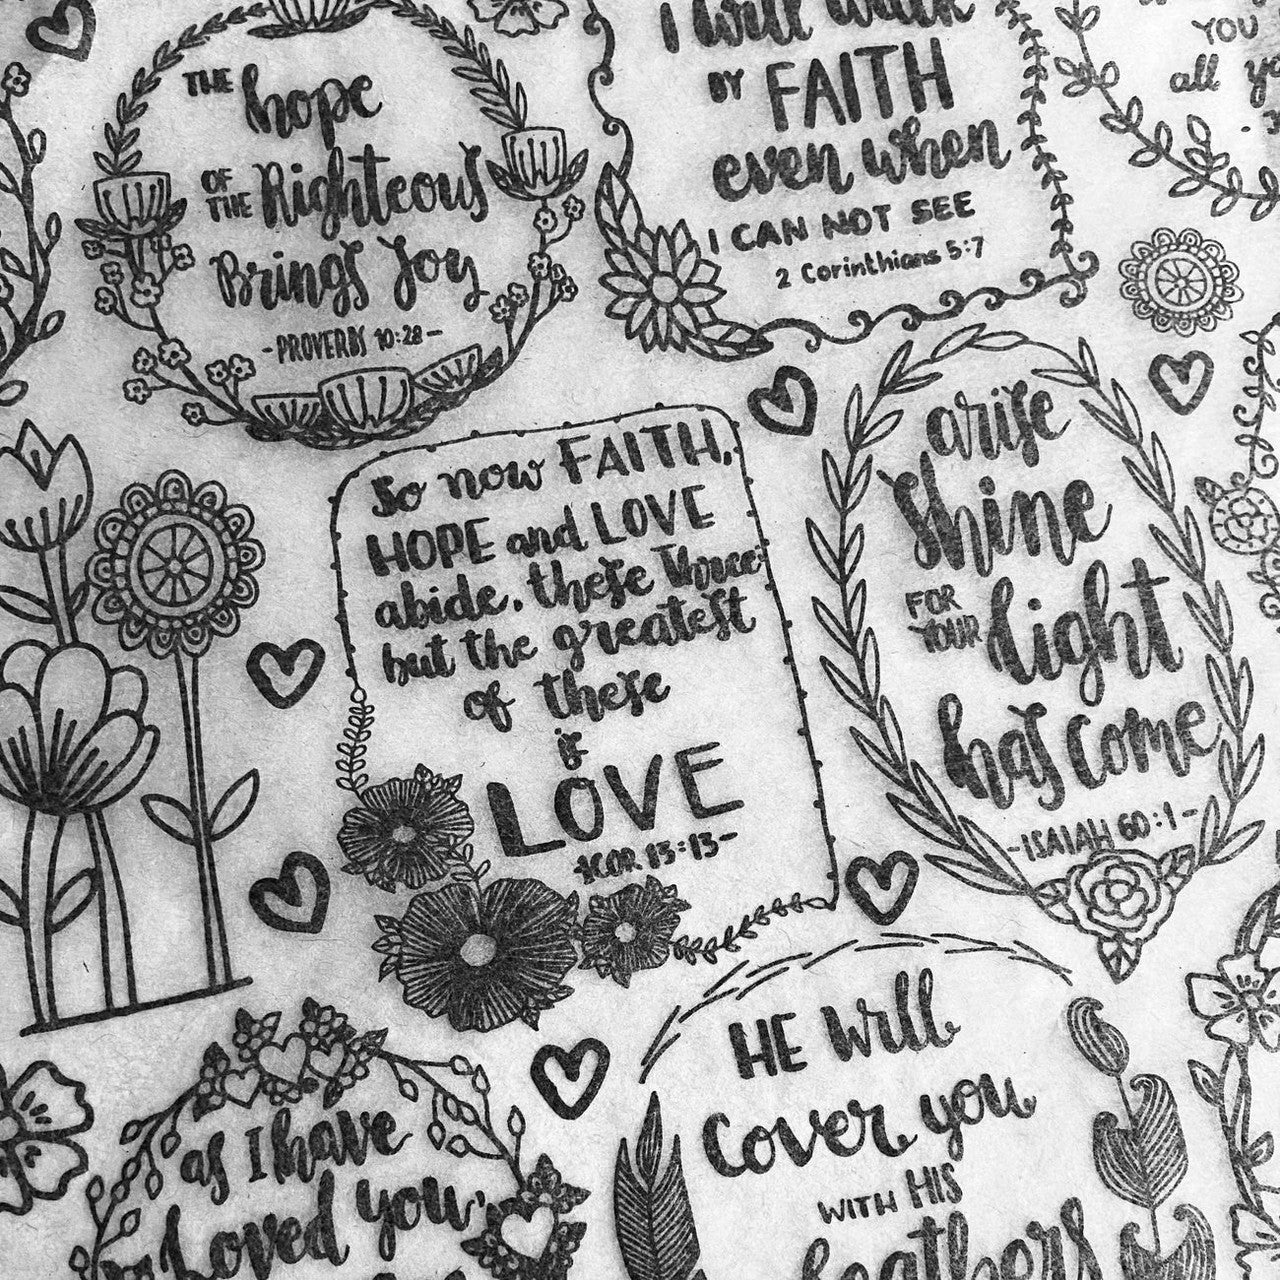 THE hope
OF THE Righteous
Brings Joy
-PROVERBS 10:28-
I will walk
BY FAITH
even when
I CAN NOT SEE
2 Corinthians 5:7
YOU
all
So now FAITH,
HOPE and LOVE
abide, these three:
but the greatest
of these
is
LOVE
-1COR. 13:13-
arise
Shine
FOR YOUR light
has Come
-ISAIAH 60:1-
as I have
Loved you,
HE will
Cover you
WITH HIS
feathers